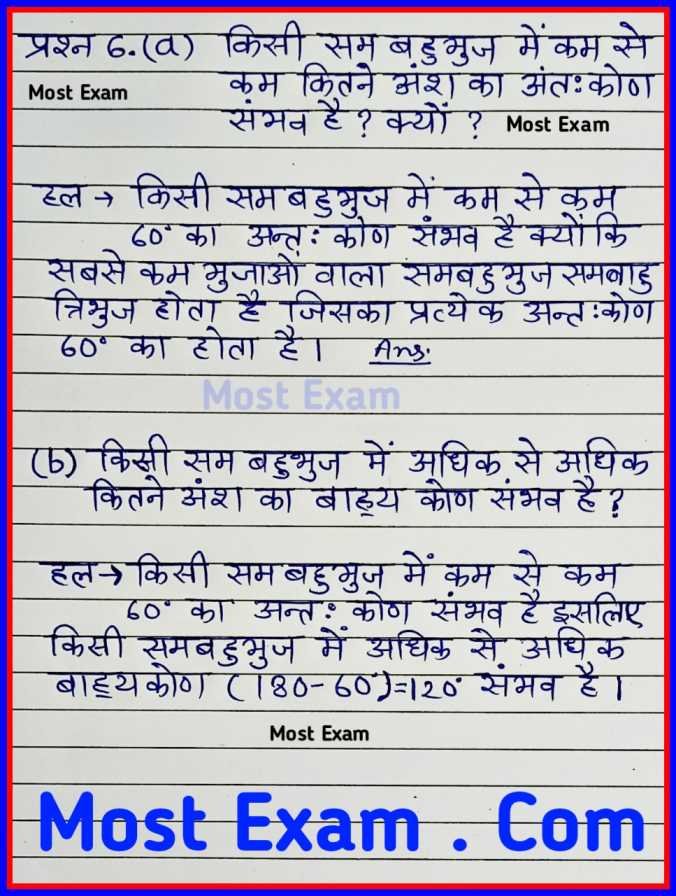 प्रश्न 6.(a) किसी सम बहुभुज में कम से
कम कितने अंश का अंतःकोण
Most Exam
संभव है ? क्यों ? Most Exam
हल → किसी सम बहुभुज में कम से कम
60° का अन्तः कोण संभव है क्यों कि
सबसे कम भुजाओं वाला समबहुभुज समबाहु
त्रिभुज होता है जिसका प्रत्येक अन्तःकोण
60° का होता है। Ans.
Most Exam
(b) किसी सम बहुभुज में अधिक से अधिक
कितने अंश का बाह्य कोण संभव है?
हल→ किसी सम बहुभुज में कम से कम
60° का अन्तः कोण संभव है इसलिए
किसी समबहुभुज में अधिक से अधिक
बाह्यकोण (180-60°)=120° संभव है।
Most Exam
Most Exam . Com